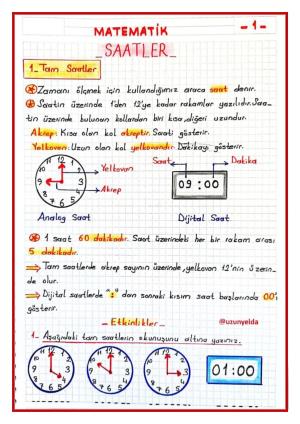 MATEMATİK
- 1 -
_SAATLER_
1_ Tam Saatler
Zamanı ölçmek için kullandığımız araca saat denir.
Saatin üzerinde 1'den 12'ye kadar rakamlar yazılıdır. Saa-
tin üzerinde bulunan kollardan biri kısa, diğeri uzundur.
Akrep: Kısa olan kol akreptir. Saati gösterir.
Yelkovan: Uzun olan kol yelkovandır. Dakikayı gösterir.
Yelkovan
Akrep
Saat
Dakika
09:00
Analog Saat
Dijital Saat
1 saat 60 dakikadır. Saat üzerindeki her bir rakam arası
5 dakikadır.
Tam saatlerde akrep sayının üzerinde, yelkovan 12'nin üzerin-
de olur.
Dijital saatlerde ":" dan sonraki kısım saat başlarında 00'ı
gösterir.
_ Etkinlikler _
@uzunyelda
1_ Aşağıdaki tam saatlerin okunuşunu altına yazınız.
01:00